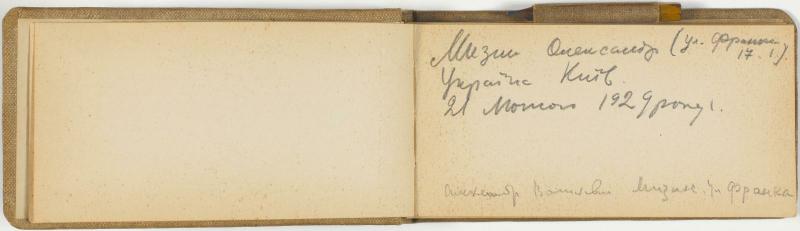 Мизин Олександр (ул. Франка 17. 1.)
Україна Київ.
21 Лютого 1929 року.
Александр Мизин. ул Франка